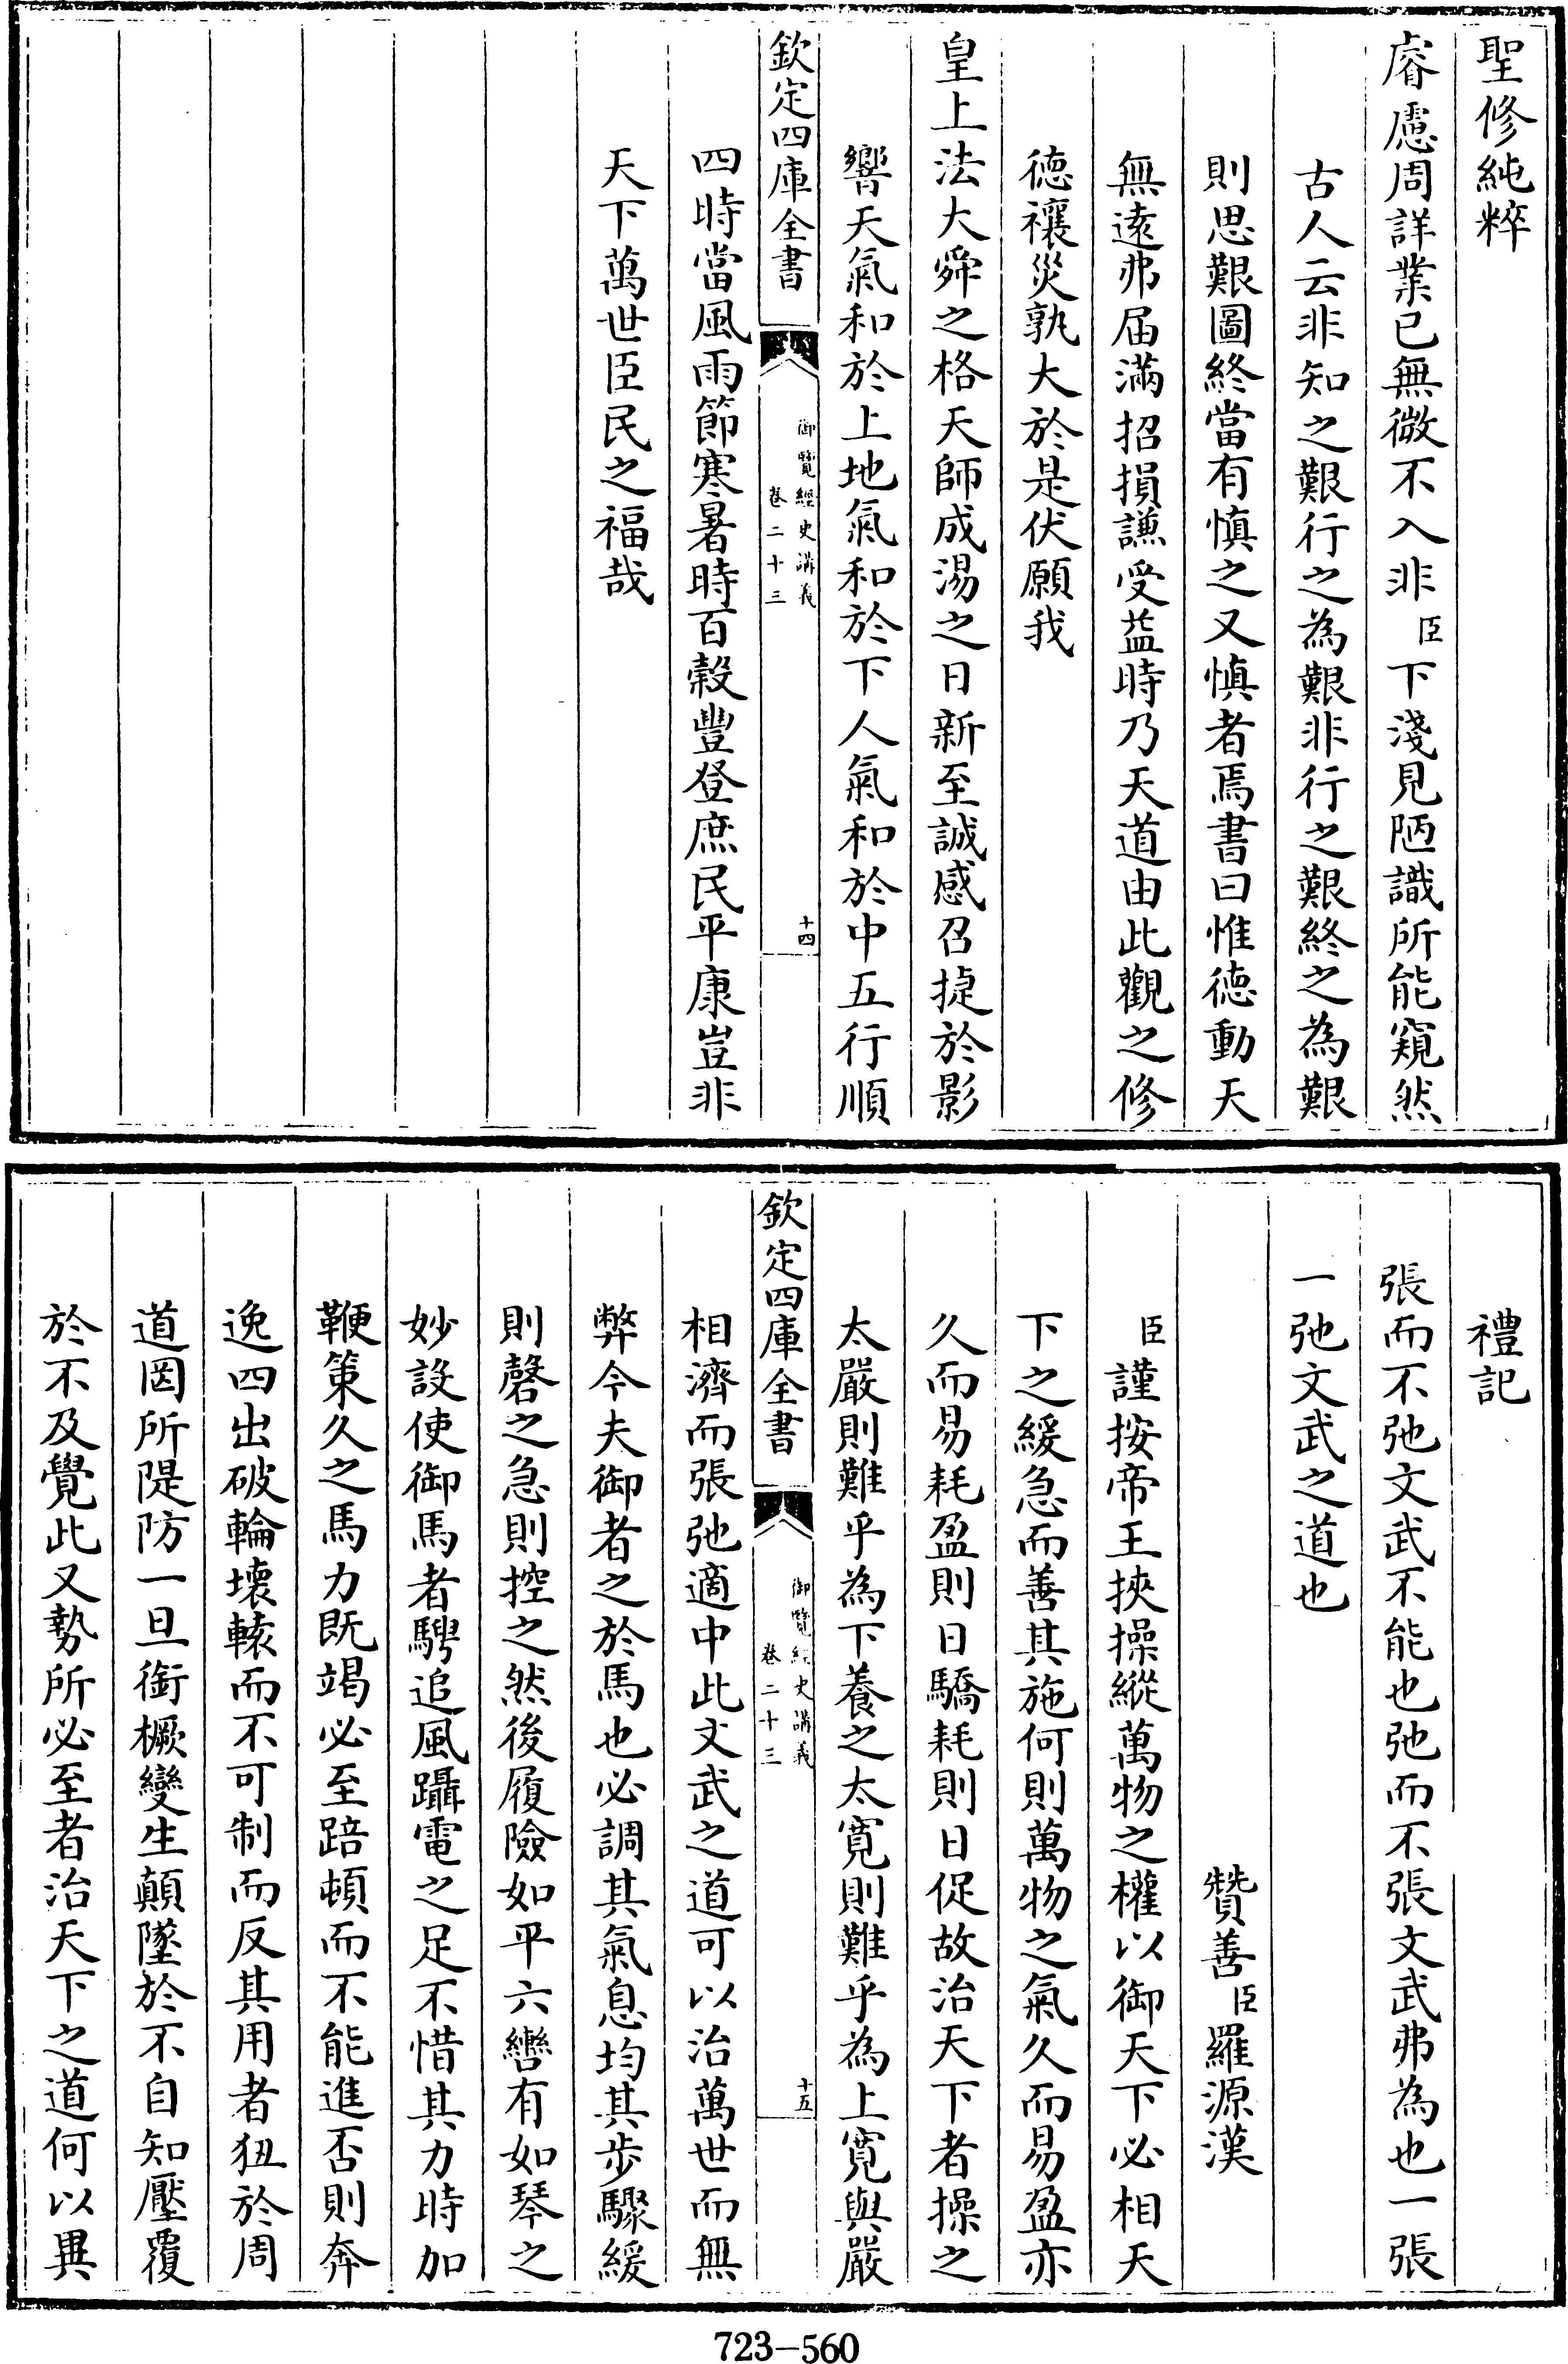 聖修純粹
睿慮周詳業已無微不入非臣下淺見陋識所能窺然
古人云非知之艱行之為艱非行之艱終之為艱
則思艱圖終當有慎之又慎者焉書曰惟德動天
無遠弗届滿招損謙受益時乃天道由此觀之修
德禳災孰大於是伏願我
皇上法大舜之格天師成湯之日新至誠感召捷於影
響天氣和於上地氣和於下人氣和於中五行順
欽定四庫全書
御覽經史講義
卷二十三
十四
四時當風雨節寒暑時百穀豐登庶民平康豈非
天下萬世臣民之福哉
禮記
張而不弛文武不能也弛而不張文武弗為也一張
一弛文武之道也
贊善臣羅源漢
臣謹按帝王挾操縱萬物之權以御天下必相天
下之緩急而善其施何則萬物之氣久而易盈亦
久而易耗盈則日驕耗則日促故治天下者操之
太嚴則難乎為下養之太寛則難乎為上寛與嚴
欽定四庫全書
御覽經史講義
卷二十三
十五
相濟而張弛適中此文武之道可以治萬世而無
弊今夫御者之於馬也必調其氣息均其步驟緩
則磬之急則控之然後履險如平六轡有如琴之
妙設使御馬者騁追風躡電之足不惜其力時加
鞭策久之馬力既竭必至踣頓而不能進否則奔
逸四出破輪壞轅而不可制而反其用者狃於周
道罔所隄防一旦銜橛變生顛墜於不自知壓覆
於不及覺此又勢所必至者治天下之道何以異
723-560